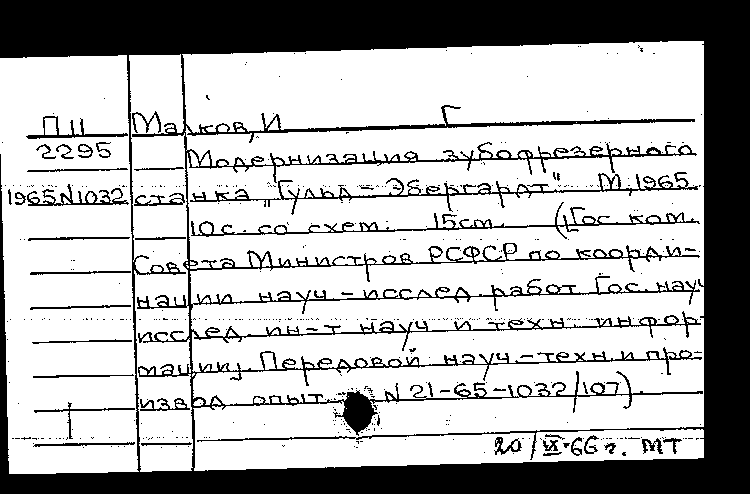 П 11 Малков, И Г
2295 Модернизация зубофрезерного
1965 N1032 станка „Гульд - Эбергардт" М, 1965.
10с. со схем. 15см. (Гос. ком.
Совета Министров РСФСР по коорди-
нации науч-исслед. работ Гос. науч
исслед. ин-т науч и техн. инфор-
мации. Передовой науч.-техн. и про-
извод опыт N 21-65-1032/107).
20/IX-66 г. МТ